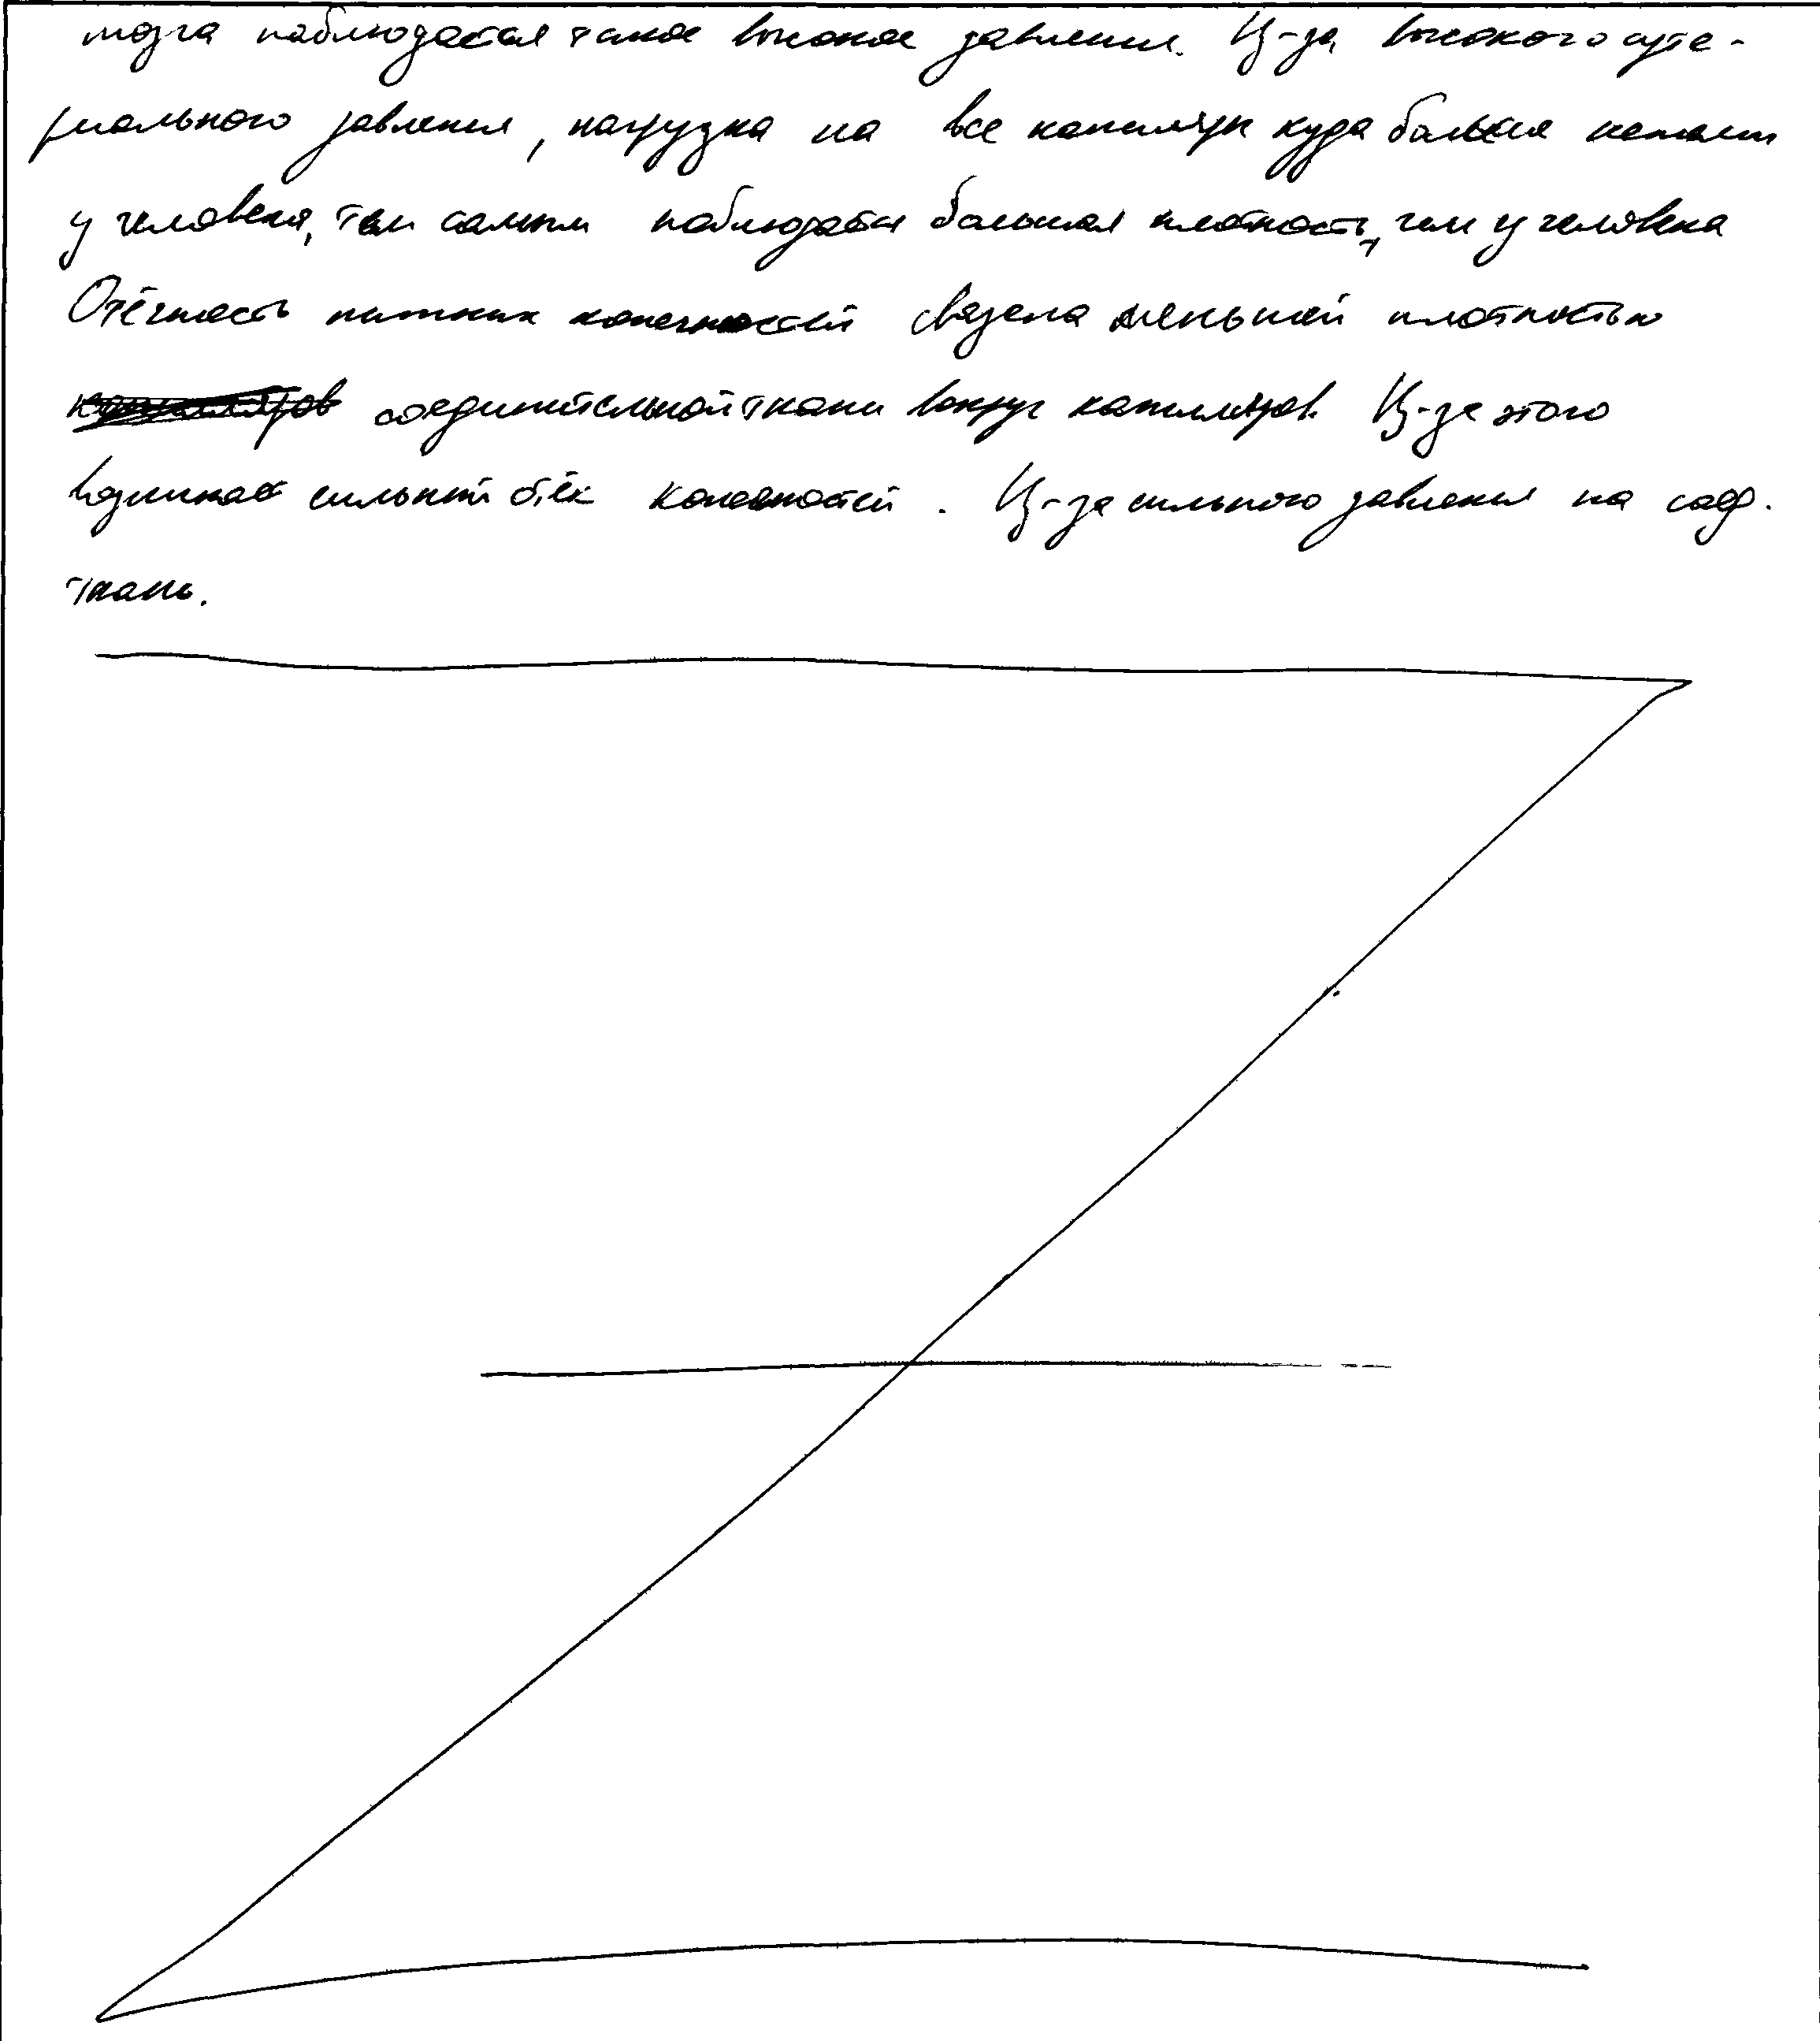 мозга наблюдается такое высокое давление. Из-за высокого арте-
риального давления, нагрузка на все капиляры куда больше нежели
у человека, тем самым наблюдается большая плотность, чем у человека
Отёчность нижних конечностей связана меньшей плотностью
соединительной ткани вокруг капилляров. Из-за этого
возникает сильный отёк конечностей. Из-за сильного давления на соед.
ткань.